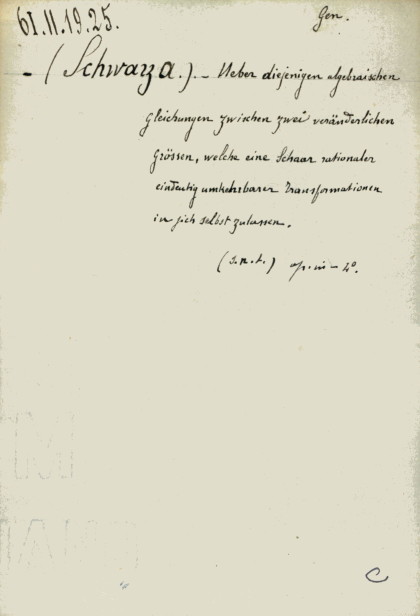 61.11.19.25.
Gen.
- (Schwarz a.). - Ueber diejenigen algebraischen
Gleichungen zwischen zwei veränderlichen
Grössen, welche eine Schaar rationaler
eindeutig umkehrbarer Transformationen
in sich selbst zulassen.
(s.n.t.) op. in - 4º.
C